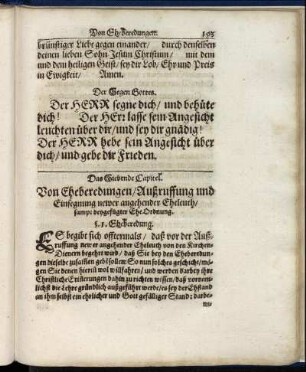 Von Eheberedungen. 195
brünstiger Liebe gegen einander / durch denselben
deinen lieben Sohn Jesum Christum / mit dem
und dem heiligen Geist / sey dir Lob / Ehr und Preis
in Ewigkeit / Amen.
Der Segen Gottes.
Der HERR segne dich / und behüte
dich! Der HErr lasse sein Angesicht
leuchten über dir / und sey dir gnädig!
Der HERR hebe sein Angesicht über
dich / und gebe dir Frieden.
Das Siebende Capitel.
Von Eheberedungen / Außruffung und
Einsegnung newer angehender Eheleuth /
sampt beygefügter Ehe-Ordnung.
§. 1. Eheberedung.
ES begibt sich offtermals / daß vor der Auß-
ruffung new er angehender Eheleuth von den Kirchen-
Dienern begehrt wird / daß Sie bey den Eheberedun-
gen dieselbe zusammen geben sollen So nun solches geschicht / mö-
gen Sie denen hierin wol willfahren / und werden darbey ihre
Christliche Erinnerungen dahin zu richten wissen / daß vornem-
lichst die Lehre gründlich außgeführt werde / es sey der Ehstand
an ihm selbst ein ehrlicher und Gott gefälliger Stand: darbe-